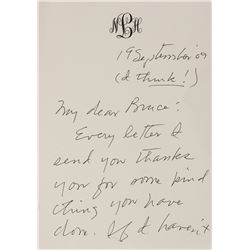 NBH
19 September '09
(I think!)
My dear Bruce:
Every letter I
send you thanks
you for some kind
thing you have
done. If I haven't